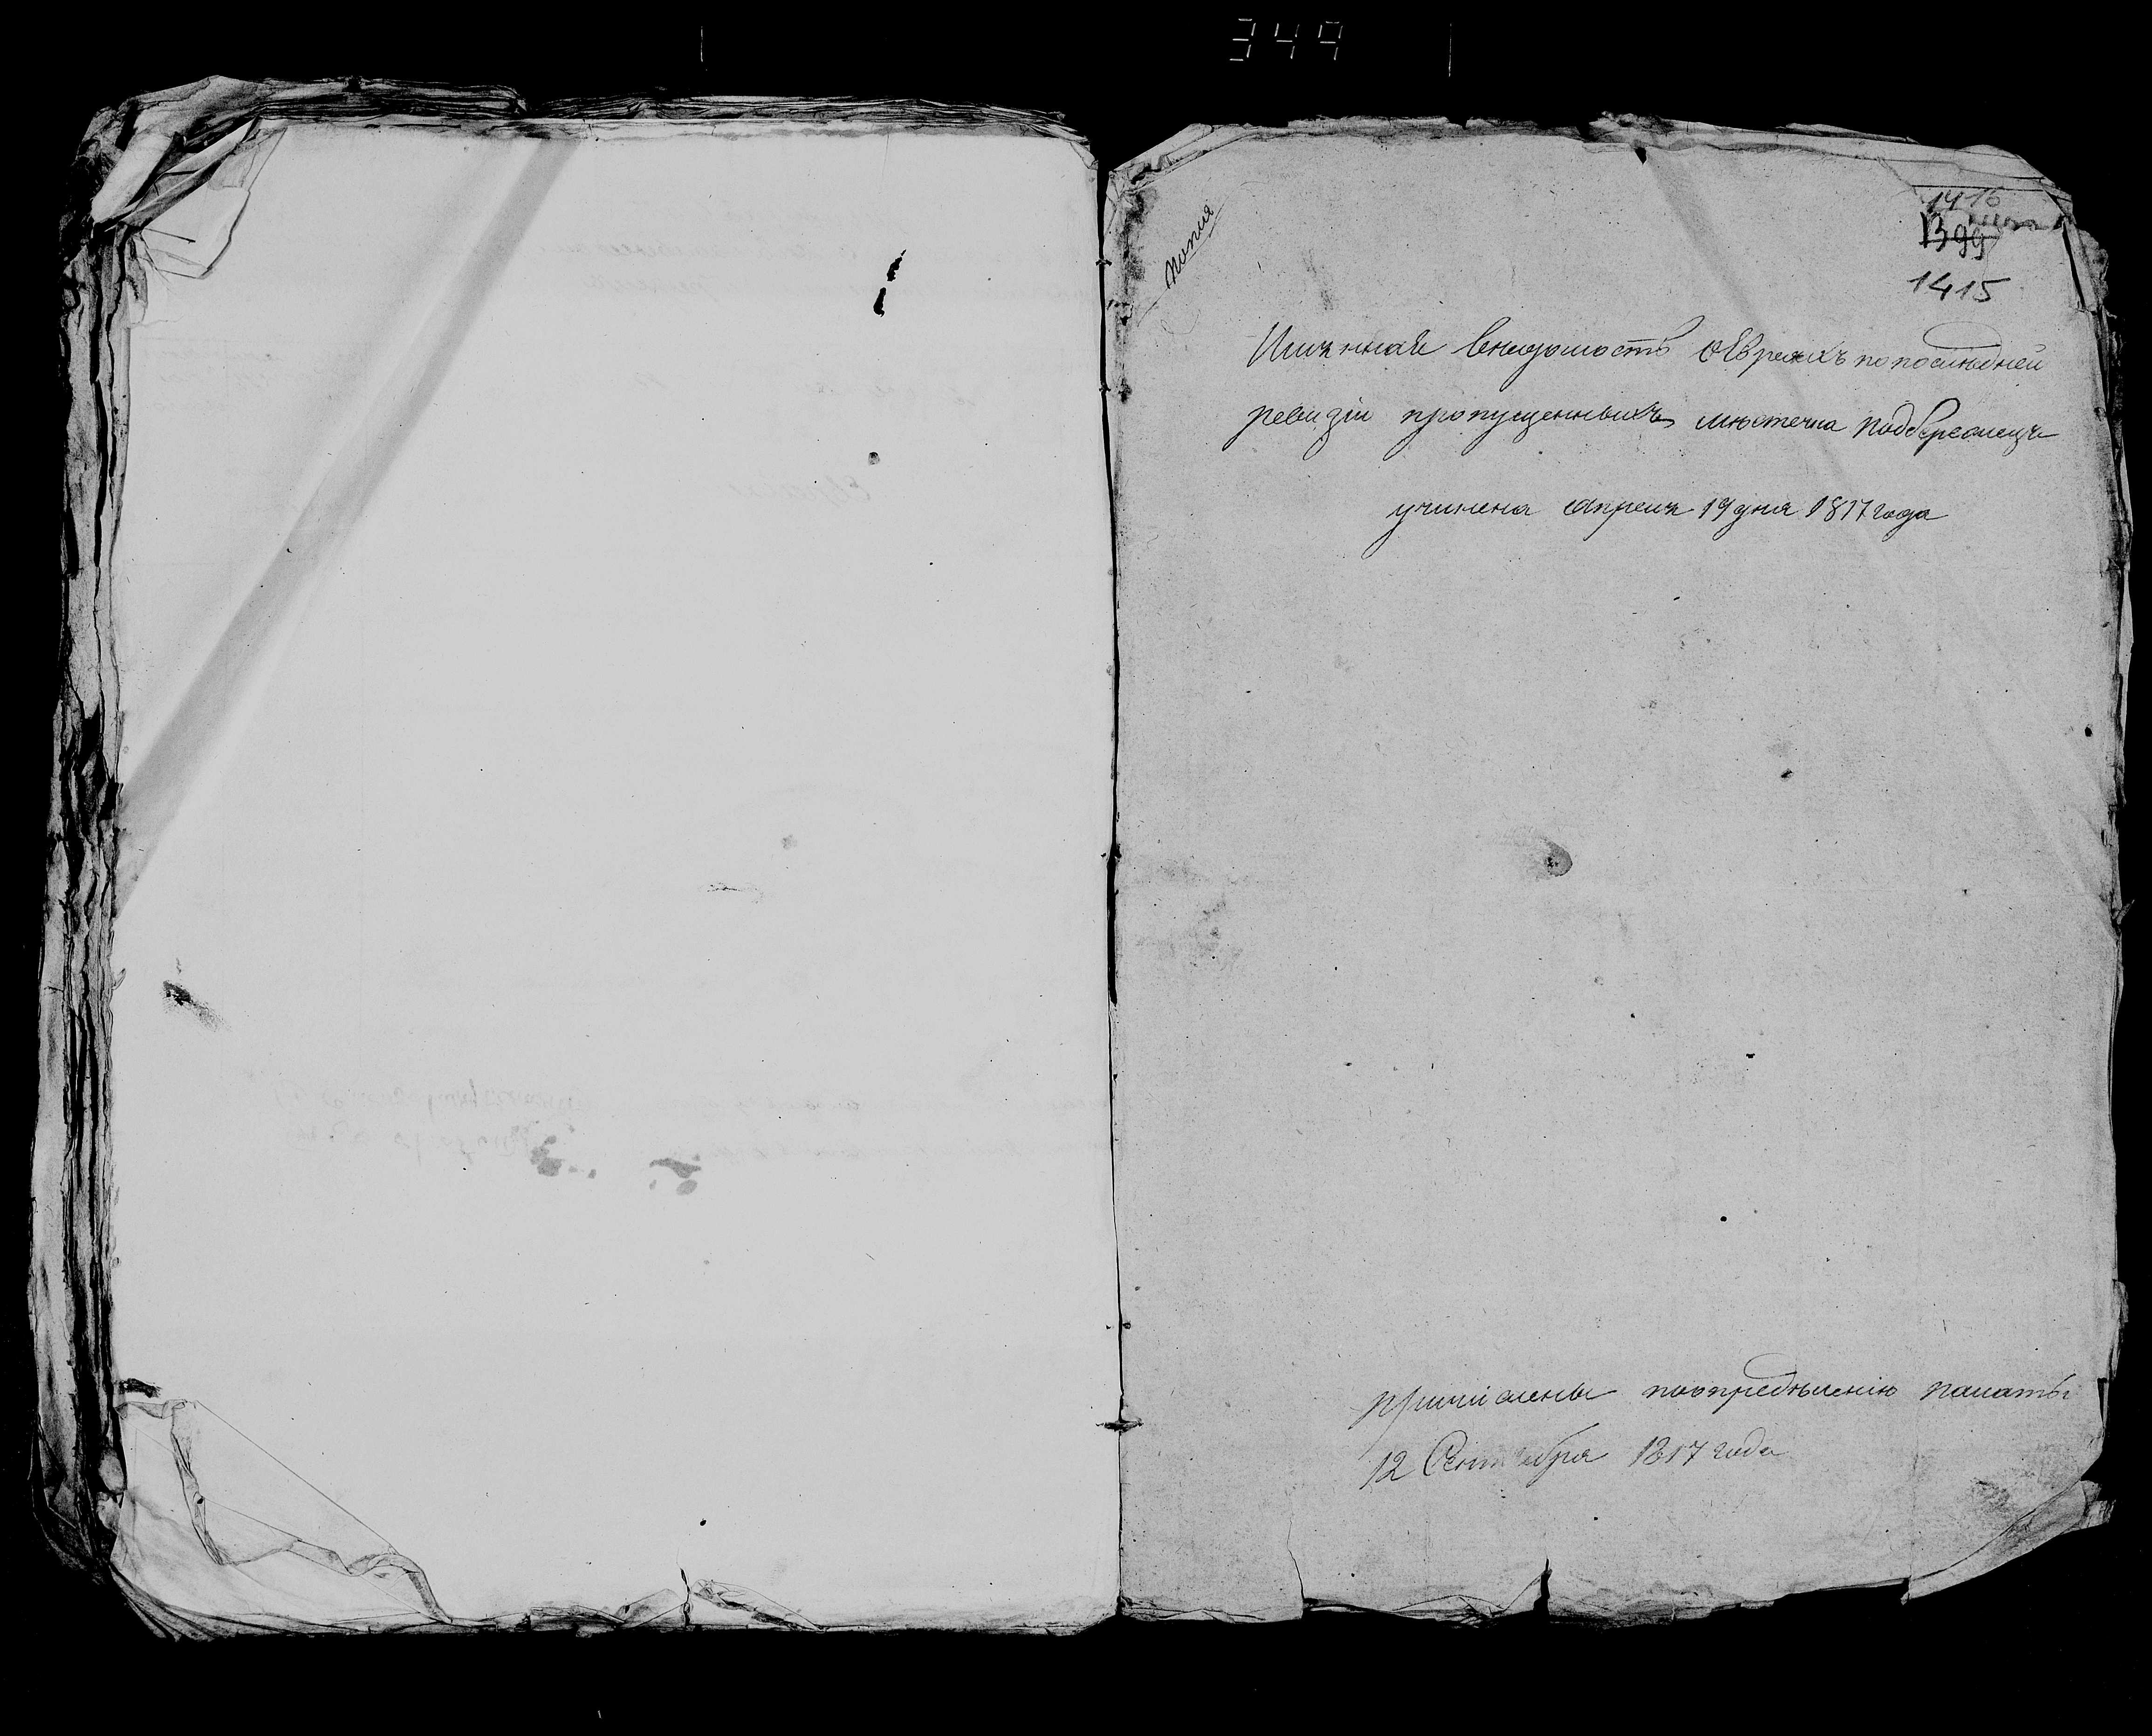 349
Копия
1416
1399
1415
Имянная ведомость о Евреяхъ по последней
ревизіи пропущенныхъ местечка Подберезецъ
учинена Апреля 19 дня 1817 года
Причислены по определенію палаты
12 Сентября 1817 года